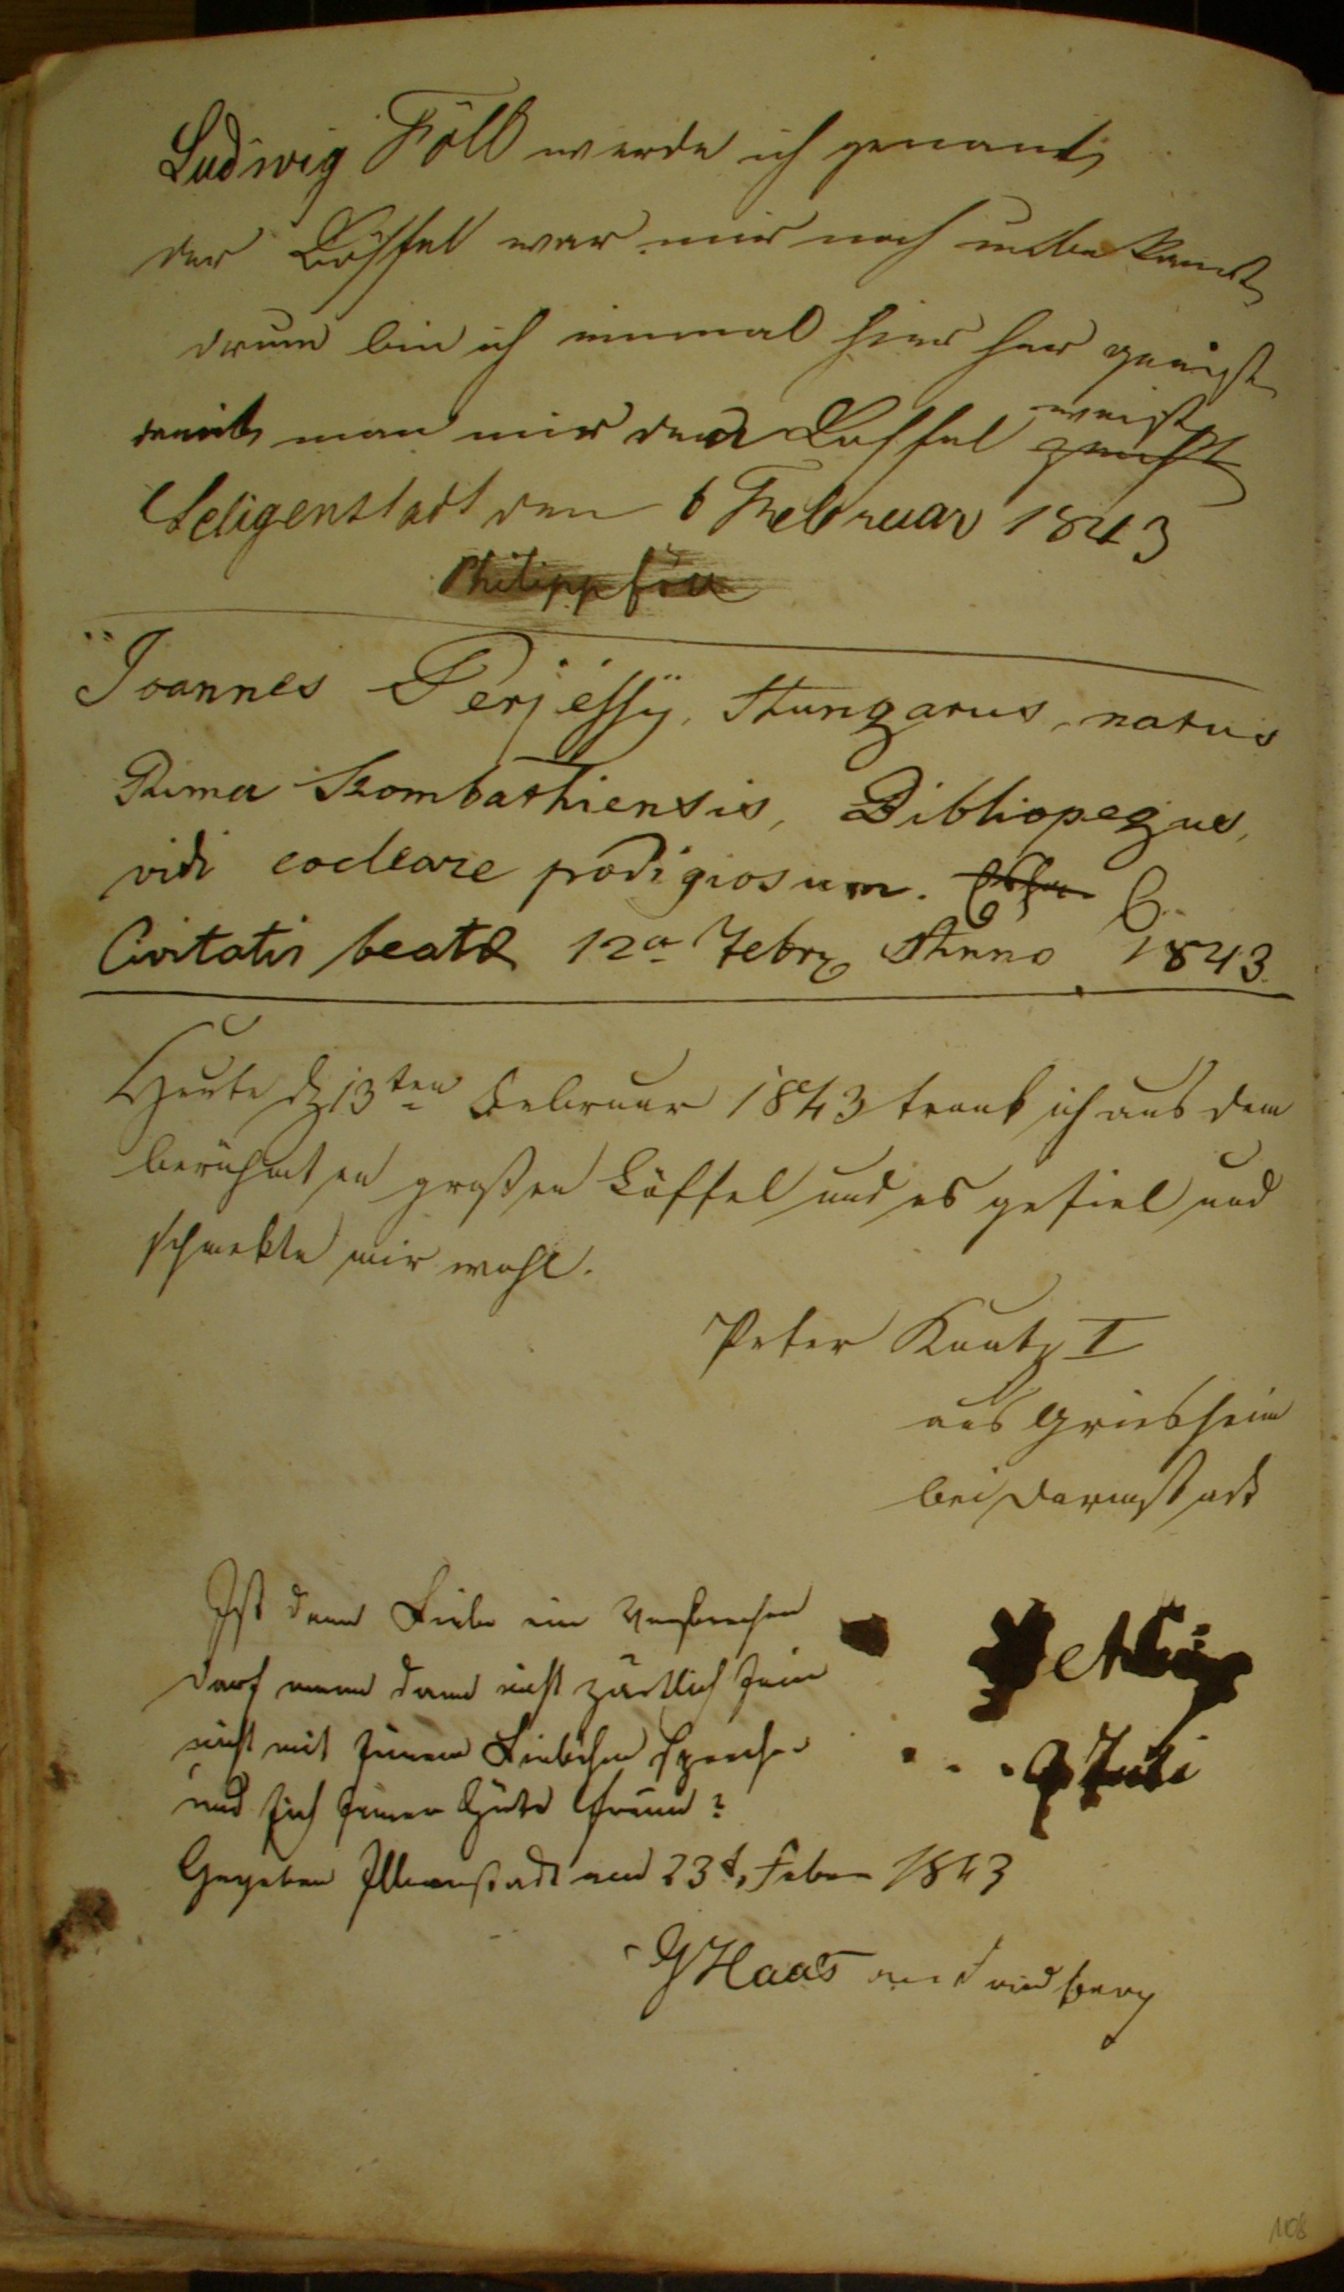 Ludwig Föll werde ich genant,
der Löffel war mir noch unbekannt,
drum bin ich einmal hier her gereist
damit man mir den Loffel weist
Seligenstadt den 6 Februar 1843
Philipp
Joannes Perjéssÿ, Hungarus, natus
Rima Szombathiensis, Bibliopegus,
vidi cocleare prodigiosum.
Civitatis beatæ 12a Febry Anno 1843.
Heute d 13ten Februar 1843 trank ich aus dem
berühmten großen Löffel und es gefiel und
schmekte mir wohl.
Peter Kautz I
aus Griesheim
bei Darmstadt
Ist denn Liebe ein Verbrechen
darf man denn nicht zärtlich sein
nicht mit seinem Liebchen sprechen
und sich seiner Güte freuen?
Gegeben am 23t, Feber 1843
G Haas
108